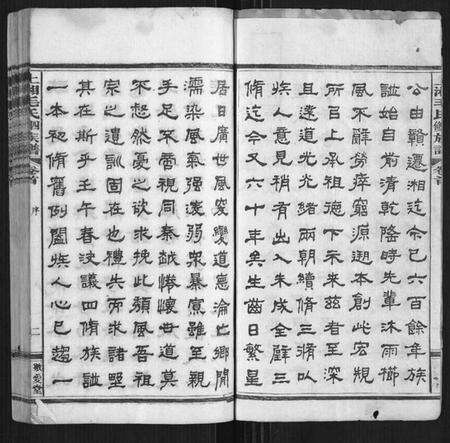 湘毛氏四修族譜 卷首
公由贛遷湘迄今已六百餘年族
譜始自前清乾隆時先輩沐雨櫛
風不辭勞瘁窮源溯本創此宏規
所㠯上承祖德下示來茲者至深
且遠道光光緒兩朝續脩三脩以
族人意見稍有出入未成全璧三
脩迄今又六十年矣生齒日繁星
居日廣世風丕變道悳淪亡鄉閭
濡染風氣強凌弱眾暴寡雖至親
手足不啻視同秦越惓懷世道莫
不惄然憂之欲求挽此頹風吾祖
宗之遺訓固在也禮失而求諸野
其在斯乎壬午春決議四脩族譜
一本初脩舊例闔族人心已趨一
上湘毛氏四修族譜 卷首 序 二 愛堂